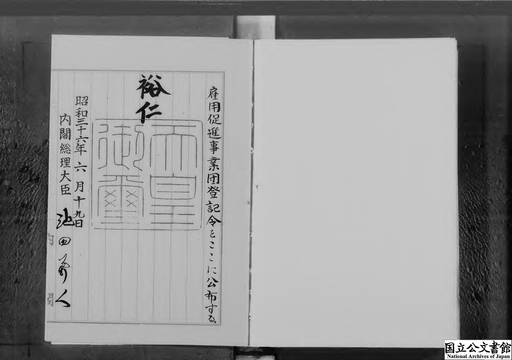 雇用促進事業団登記令をここに公布する
裕仁
天皇
御璽
昭和三十六年六月十九日
内閣総理大臣 池田勇人
内閣
国立公文書館
National Archives of Japan